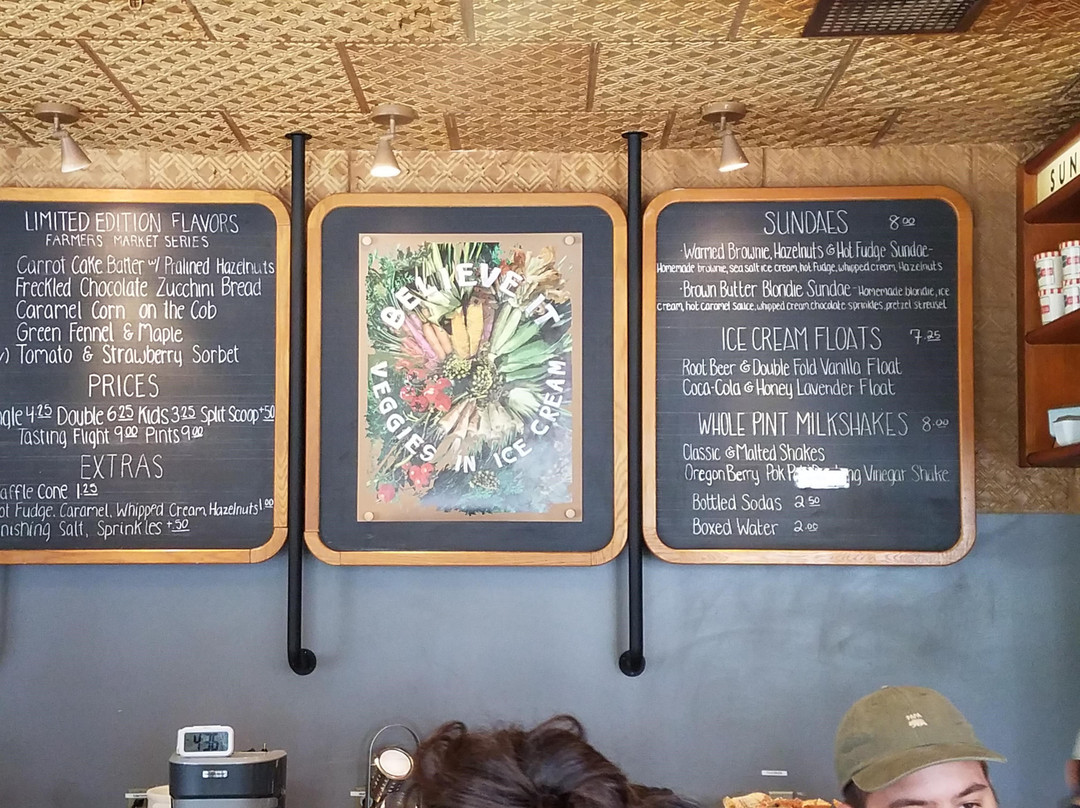 LIMITED EDITION FLAVORS
FARMERS MARKET SERIES
Carrot Cake Batter w/ Pralined Hazelnuts
Freckled Chocolate Zucchini Bread
Caramel Corn on the Cob
Green Fennel & Maple
) Tomato & Strawberry Sorbet
PRICES
gle 4.25 Double 6.25 Kids 3.25 Split Scoop +50
Tasting Flight 9.00 Pints 9.00
EXTRAS
affle Cone 1.25
ot Fudge, Caramel, Whipped Cream, Hazelnuts 1.00
nishing Salt, Sprinkles +.50
BELIEVE IT
VEGGIES IN ICE CREAM
SUNDAES 8.00
·Warmed Brownie, Hazelnuts & Hot Fudge Sundae-
Homemade brownie, sea salt ice cream, hot fudge, whipped cream, Hazelnuts
·Brown Butter Blondie Sundae- Homemade blondie, ice
cream, hot caramel sauce, whipped cream, chocolate sprinkles, pretzel streusel
ICE CREAM FLOATS 7.25
Root Beer & Double Fold Vanilla Float
Coca-Cola & Honey Lavender Float
WHOLE PINT MILKSHAKES 8.00
Classic & Malted Shakes
Oregon Berry Pok P ng Vinegar Shake
Bottled Sodas 2.50
Boxed Water 2.00
SUN
4:36